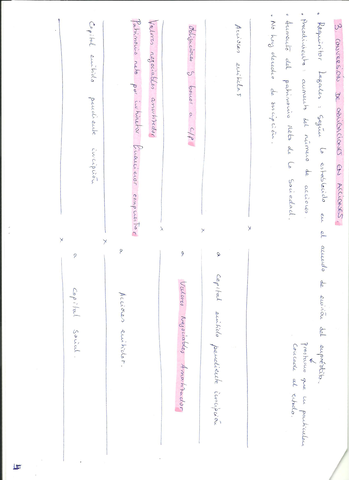 3. CONVERSION DE OBLIGACIONES EN ACCIONES
• Requisitos Legales: Según lo establecido en el acuerdo de emisión del empréstito.
préstamo que un particular
concede al estado.
• Procedimiento aumento del número de acciones
• Aumento del patrimonio neto de la sociedad.
• No hay derecho de suscripción.
x
Acciones emitidas
a Capital emitido pendiente inscripción
x
Obligaciones y bonos a c/p
a Valores negociables amortizados
x
Valores negociables amortizados
Patrimonio neto por instrumentos financieros compuestos
a Acciones emitidas.
x
Capital emitido pendiente inscripción
a Capital social.
x